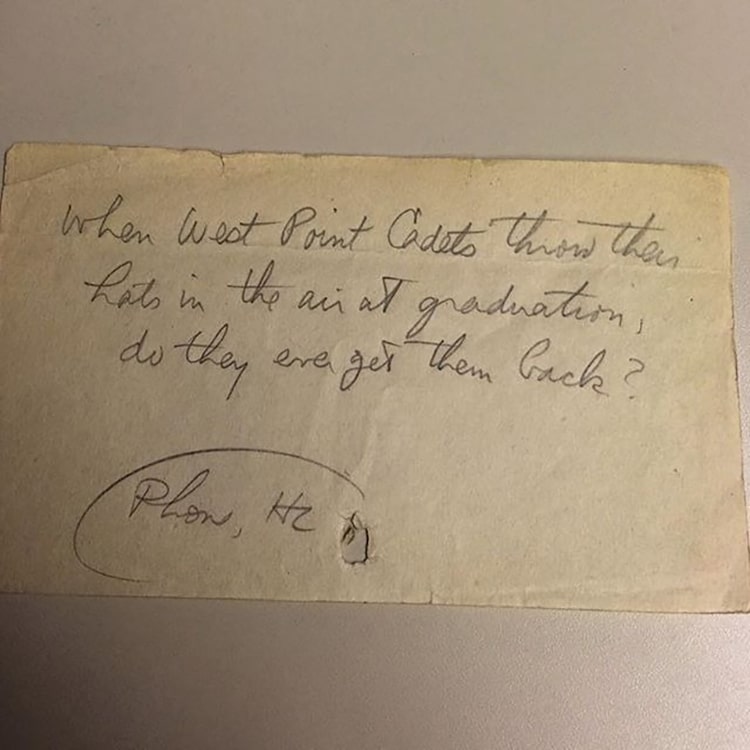 When West Point Cadets throw their
hats in the air at graduation,
do they ever get them back?
Phone,